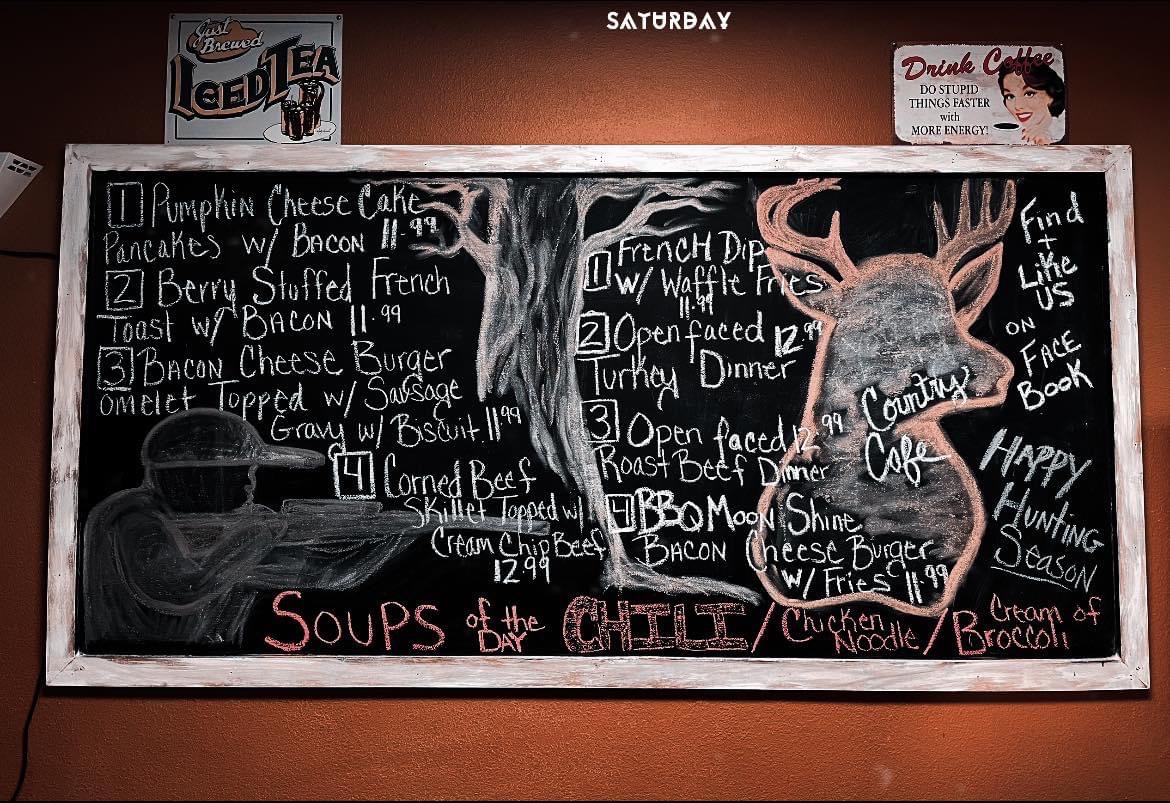 SATURDAY
Just
Brewed
ICED TEA
Drink Coffee
DO STUPID
THINGS FASTER
with
MORE ENERGY!
1 Pumpkin Cheese Cake
Pancakes w/ Bacon 11.99
2 Berry Stuffed French
Toast w/ Bacon 11.99
3 Bacon Cheese Burger
Omelet Topped w/ Sausage
Gravy w/ Biscuit 11.99
4 Corned Beef
Skillet Topped w/
Cream Chip Beef
12.99
1 French Dip
w/ Waffle Fries
11.99
2 Open faced 12.99
Turkey Dinner
3 Open faced 12.99
Roast Beef Dinner
4 BBQ Moon Shine
Bacon Cheese Burger
w/ Fries 11.99
Country
Cafe
Find
+
Like
US
ON
FACE
BOOK
HAPPY
Hunting
Season
Soups of the DAY CHILI / Chicken Noodle / Cream of Broccoli